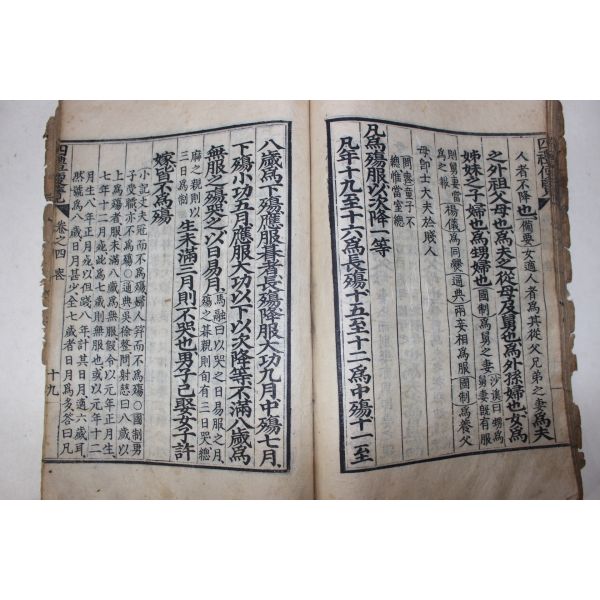 人者不降也 備要 女適人者爲其從父兄弟之妻 爲夫
之外祖父母也 爲夫之從母及舅也 爲外孫婦也 女爲
姊妹之子婦也 爲甥婦也 國制爲舅之妻 沙溪曰甥爲舅妻旣有服
則舅妻當爲之報 楊儀爲同爨 通典 兩妾相爲服 國制爲養父
母卽士大夫於賤人
凡爲殤服以次降一等 童子不總惟當室總
凡年十九至十六爲長殤十五至十二爲中殤十一至
八歲爲下殤應服朞者長殤降服大功九月中殤七月
下殤小功五月應服大功以下以次降等不滿八歲爲
無服之殤哭之以日易月 馬融曰以哭之日易服之月殤之朞親則旬有三日哭總
麻之親則以三日爲制 生未滿三月則不哭也男子已娶女子許
嫁皆不爲殤
小記丈夫冠而不爲殤婦人笄而不爲殤○國制男
子受職亦不爲殤○通典吳徐整問射慈曰八歲以
上爲殤者服未滿八歲爲無服假令以元年正月生
七年十二月死此爲七歲則無服也或以元年十二
月生八年正月死以但踐八年計其日月適六歲耳
然號爲八歲日月甚少全七歲者日月爲多答曰凡
四禮便覽 卷之四 喪 十九